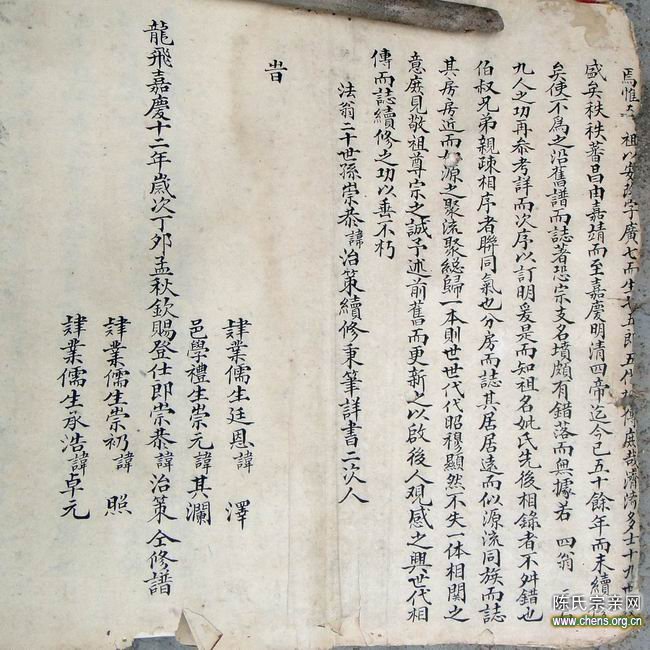 焉惟 祖以安 字廣七而生 五郎五代 傳庶哉濟濟多士十九世
盛矣秩秩蕃昌由嘉靖而至嘉慶明清四帝迄今已五十餘年而未續
矣使不為之沿舊譜而誌著恐宗支名墳頗有錯落而無據若 四翁
九人之功再參考詳而次序以訂明爰是而知祖名妣氏先後相錄者不舛錯也
伯叔兄弟親疎相序者聯同氣也分房而誌其居居遠而似源流同族而誌
其房房近而如源之聚流聚総歸一本則世世代代昭穆顯然不失一体相関之
意庶見敬祖尊宗之誠予述前舊而更新之以啟後人观感之興世代相
傳而誌續修之功以垂不朽
法翁二十世孫崇恭諱治策續修秉筆詳書二次人
旹
龍飛嘉慶十二年歲次丁夘孟秋欽賜登仕郎崇恭諱治策仝修譜
肄業儒生廷恩諱 澤
邑學禮生崇元諱其瀾
肄業儒生崇礽諱 照
肄業儒生承浩諱卓元
陈氏宗亲网
www.chens.org.cn